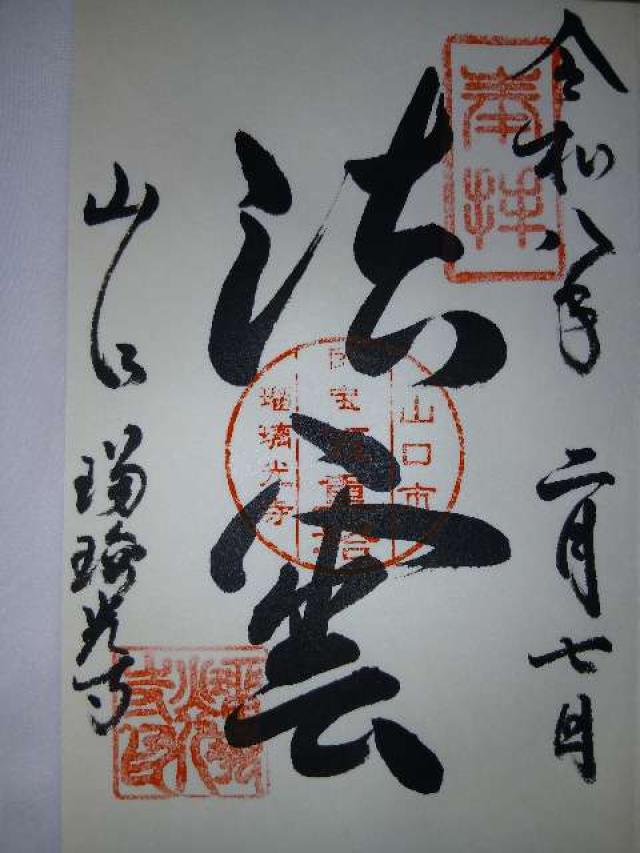 奉拝
令和八年 二月七日
法雲
山口市
国宝五重塔
瑠璃光寺
山口 瑠璃光寺